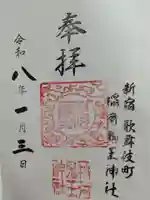 新宿 歌舞伎町
稲荷鬼王神社
奉拝
令和八年一月三日